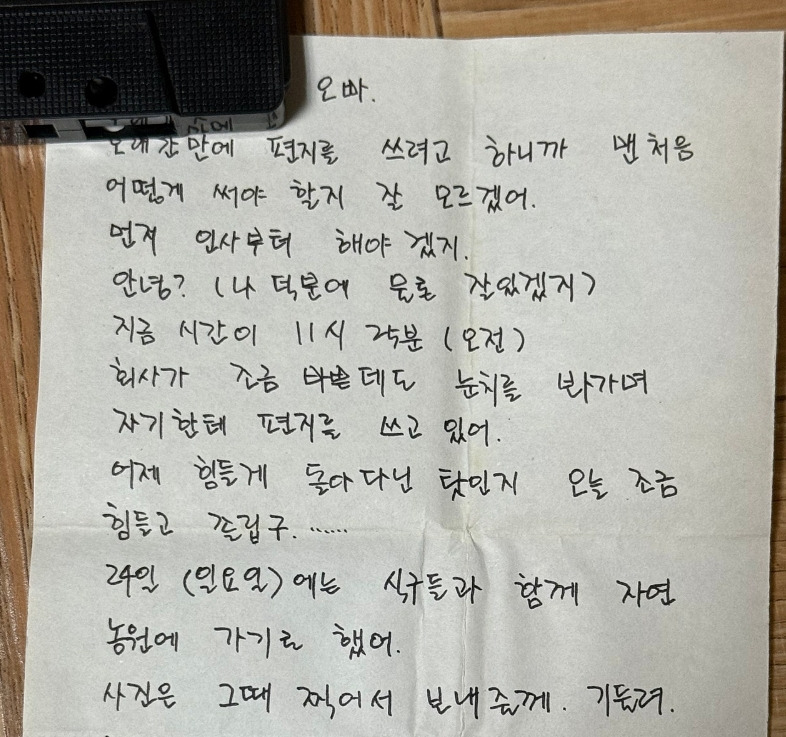 오빠.
오래간만에 편지를 쓰려고 하니까 맨처음
어떻게 써야 할지 잘 모르겠어.
먼저 인사부터 해야겠지.
안녕? (나 덕분에 물론 잘있겠지)
지금 시간이 11시 25분 (오전)
회사가 조금 바쁜데도 눈치를 봐가며
자기한테 편지를 쓰고 있어.
어제 힘들게 돌아다닌 탓인지 오늘 조금
힘들고 졸립구.……
24일 (일요일)에는 식구들과 함께 자연
농원에 가기로 했어.
사진은 그때 찍어서 보내줄께. 기둘려.